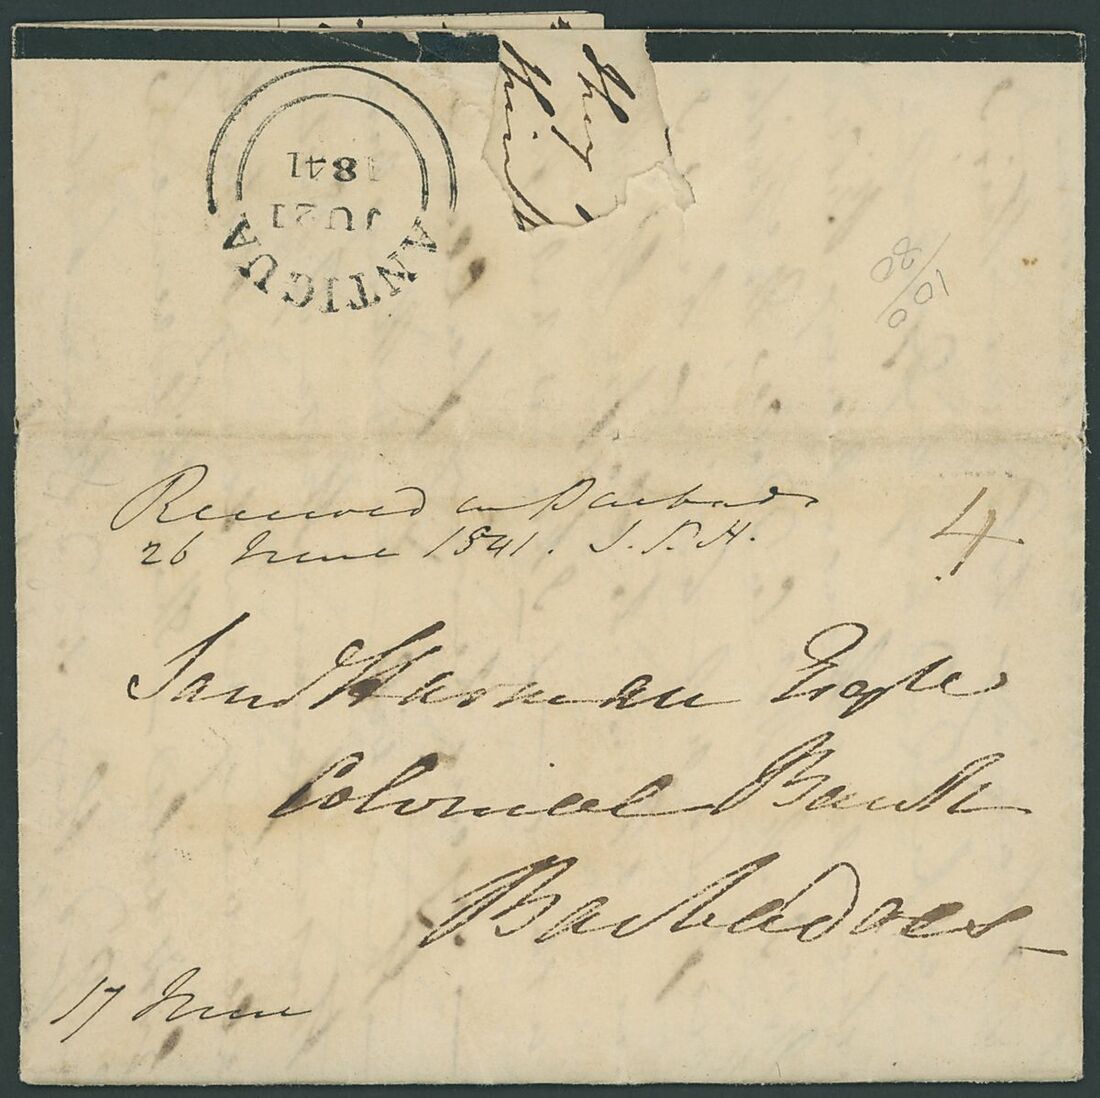 ANTIGUA
JU 21
1841
10/0
80
Received in Barbados
26 June 1841. J. S. H.
4
Saml Harman Esqre
Colonial Bank
Barbadoes
17 June